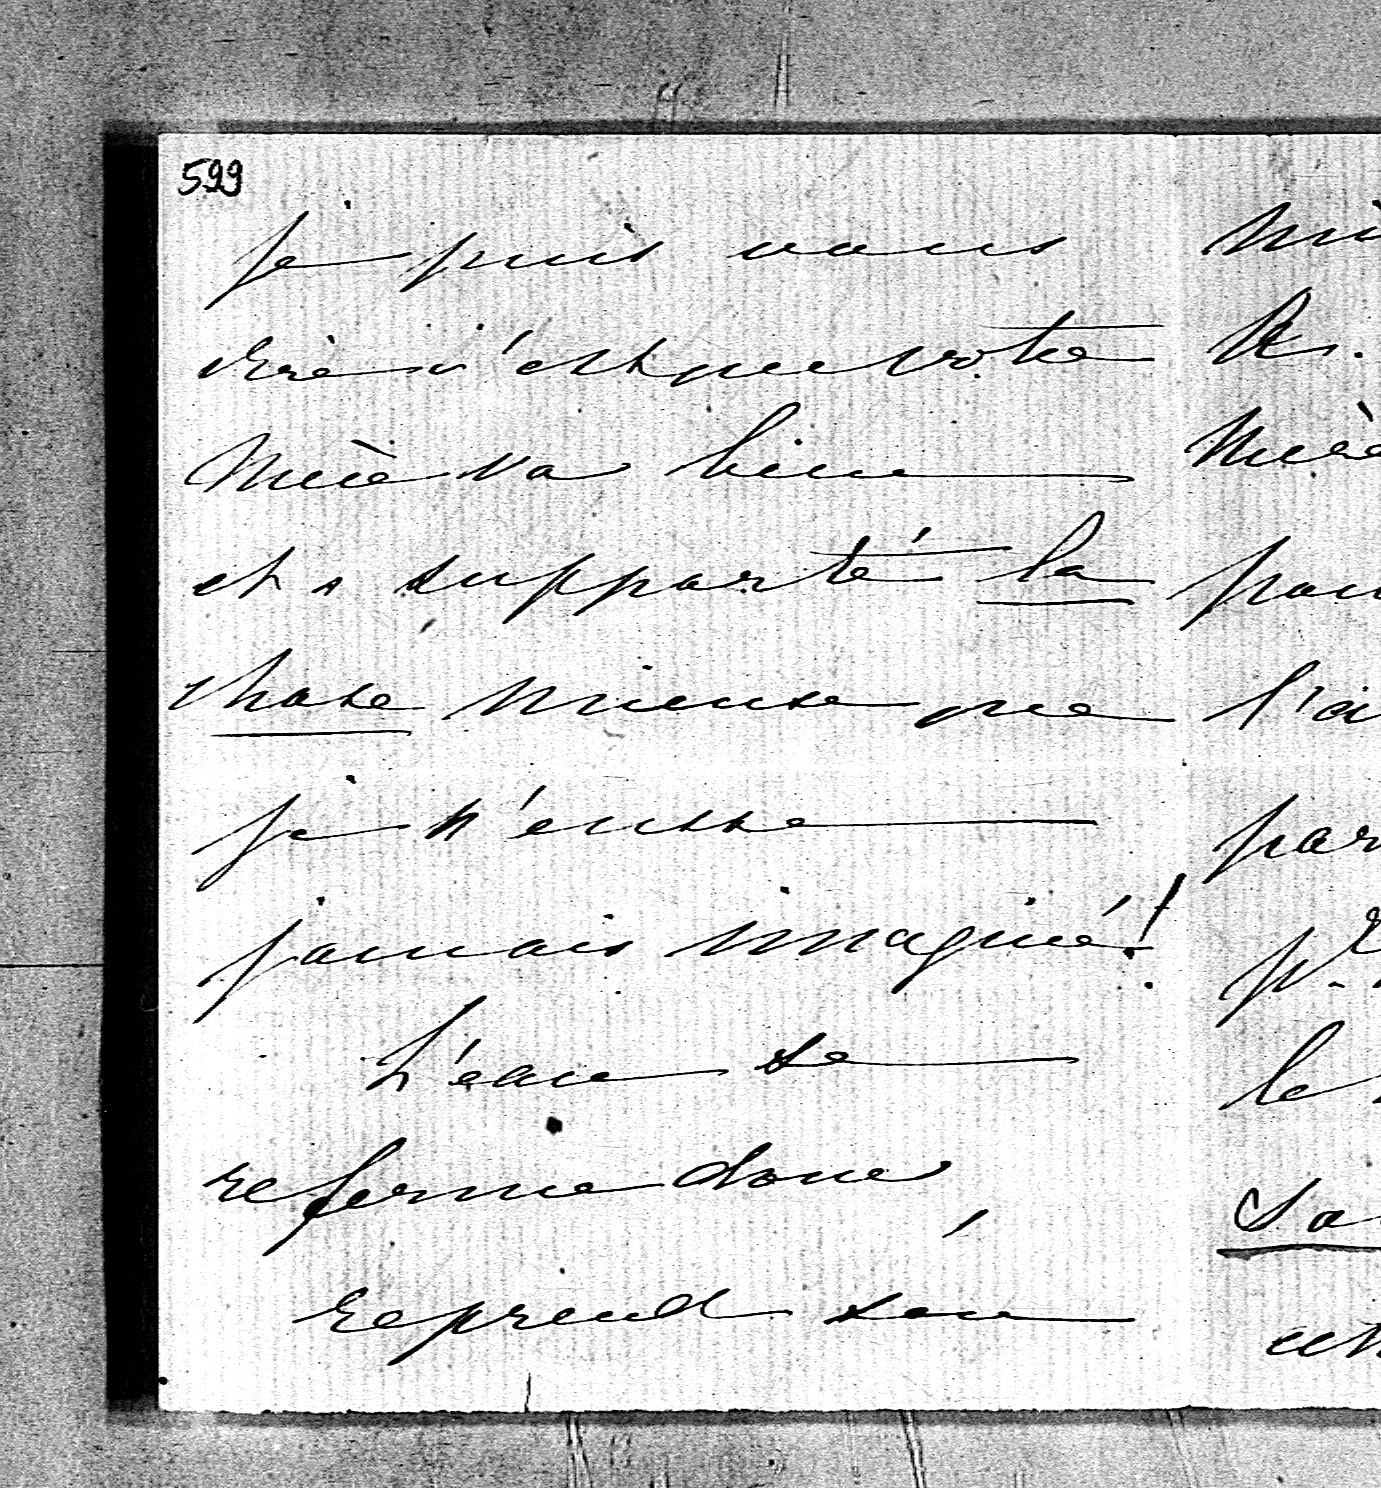 599
je puis vous
dire c'est que votre
Mère va bien
et a supporté la
chose mieux que
je n'eusse
jamais imaginé!
L'eau se
referme donc,
reprend son
R.
Mère
le